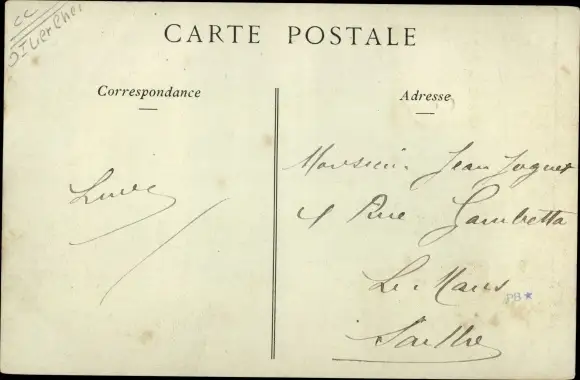 CC
CARTE POSTALE
Correspondance
Adresse
Monsieur Jean
4 Rue Gambetta
Le Mans
PB★
Sarthe